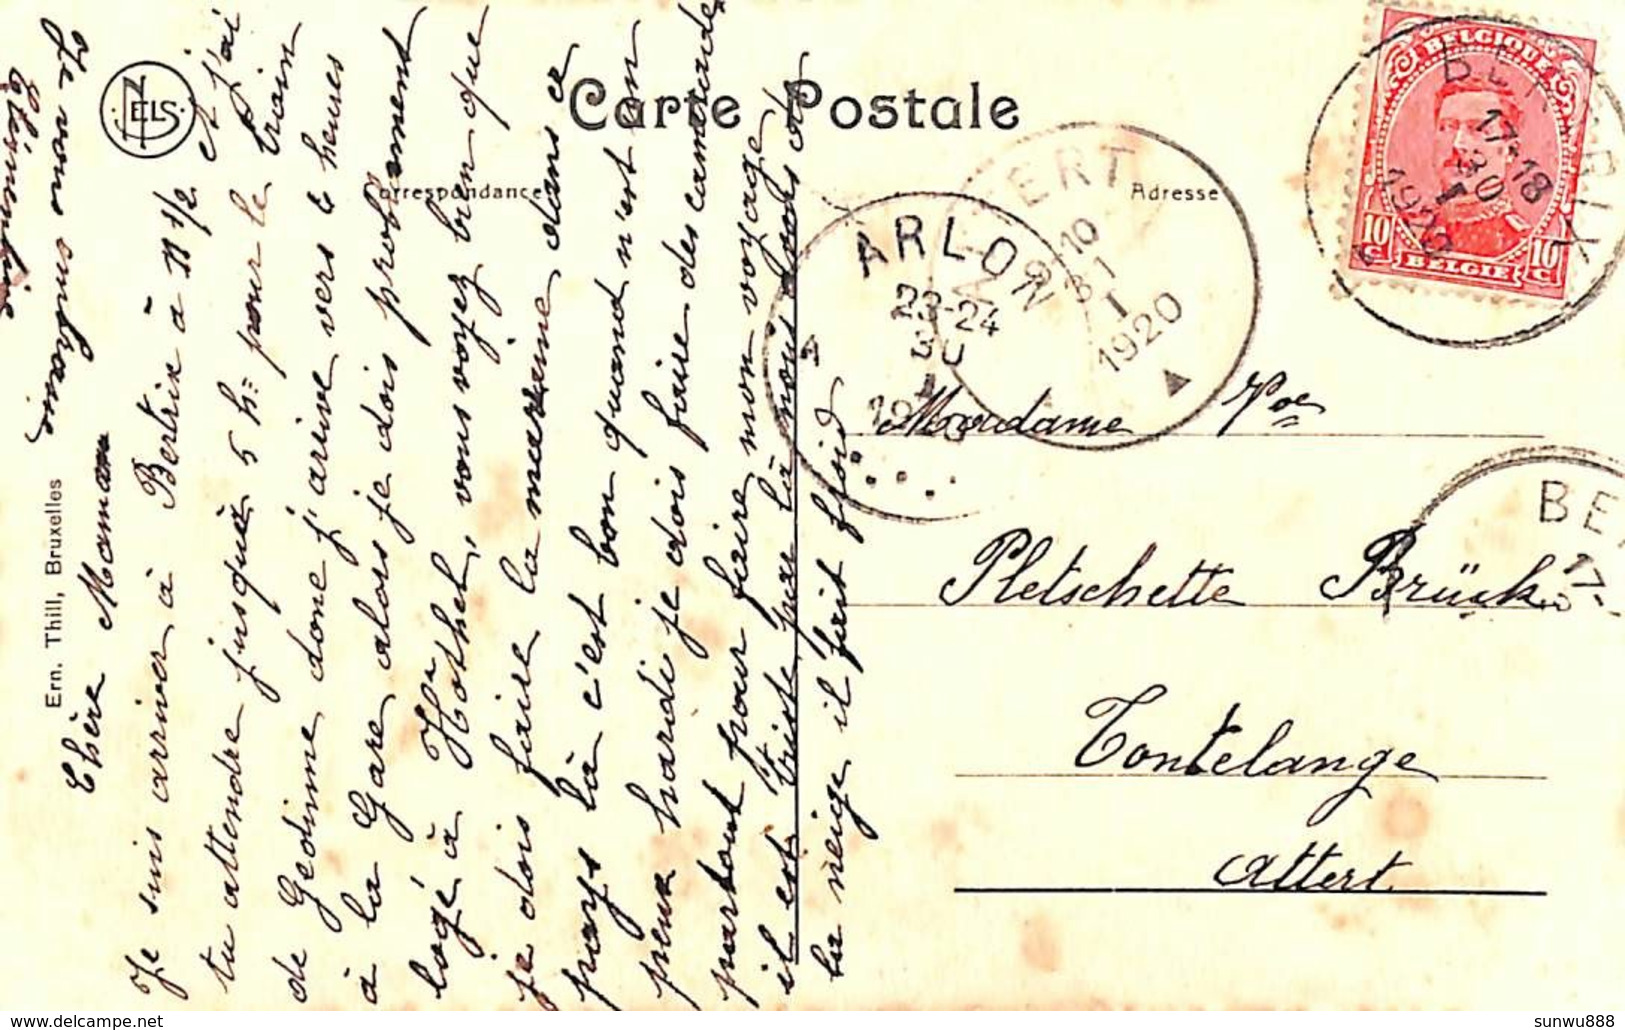 Carte Postale
Correspondance
Adresse
NELS
Ern. Thill, Bruxelles
BELGIQUE
10 C
10 C
BELGIE
BERTRIX
17-18
30
I
1920
ARLON
23-24
30
I
1920
ATTERT
10
31
I
1920
BE
17-
Madame Vve
Pletschette Brück
Tontelange
Attert
Chère Maman
Je suis arriver à Bertrix à 11 1/2 j'ai
tu attendre jusquà 5 h: pour le train
de Gedinne, donc j'arrive vers 6 heures
à la Gare alors je dois probablement
logé à Hothel, vous voyez bien que
je dois faire la marraine dans ce
pays là c'est bon quand n'est un
peux hardi je dois faire des camarades
partout pour faire mon voyage
il est triste par là nous avons de
la neige il fait froid
Je mange mon